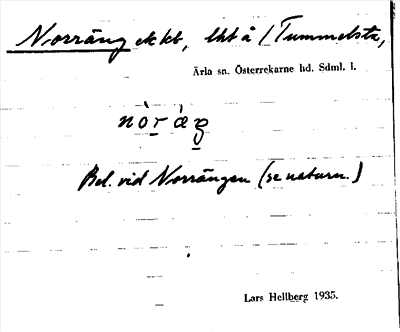 Norräng ek kb, lht å (Tummelsta,
Ärla sn. Österrekarne hd. Sdml. l.
nòr ág
Bel. vid Norrängen (se naturn.)
Lars Hellberg 1935.